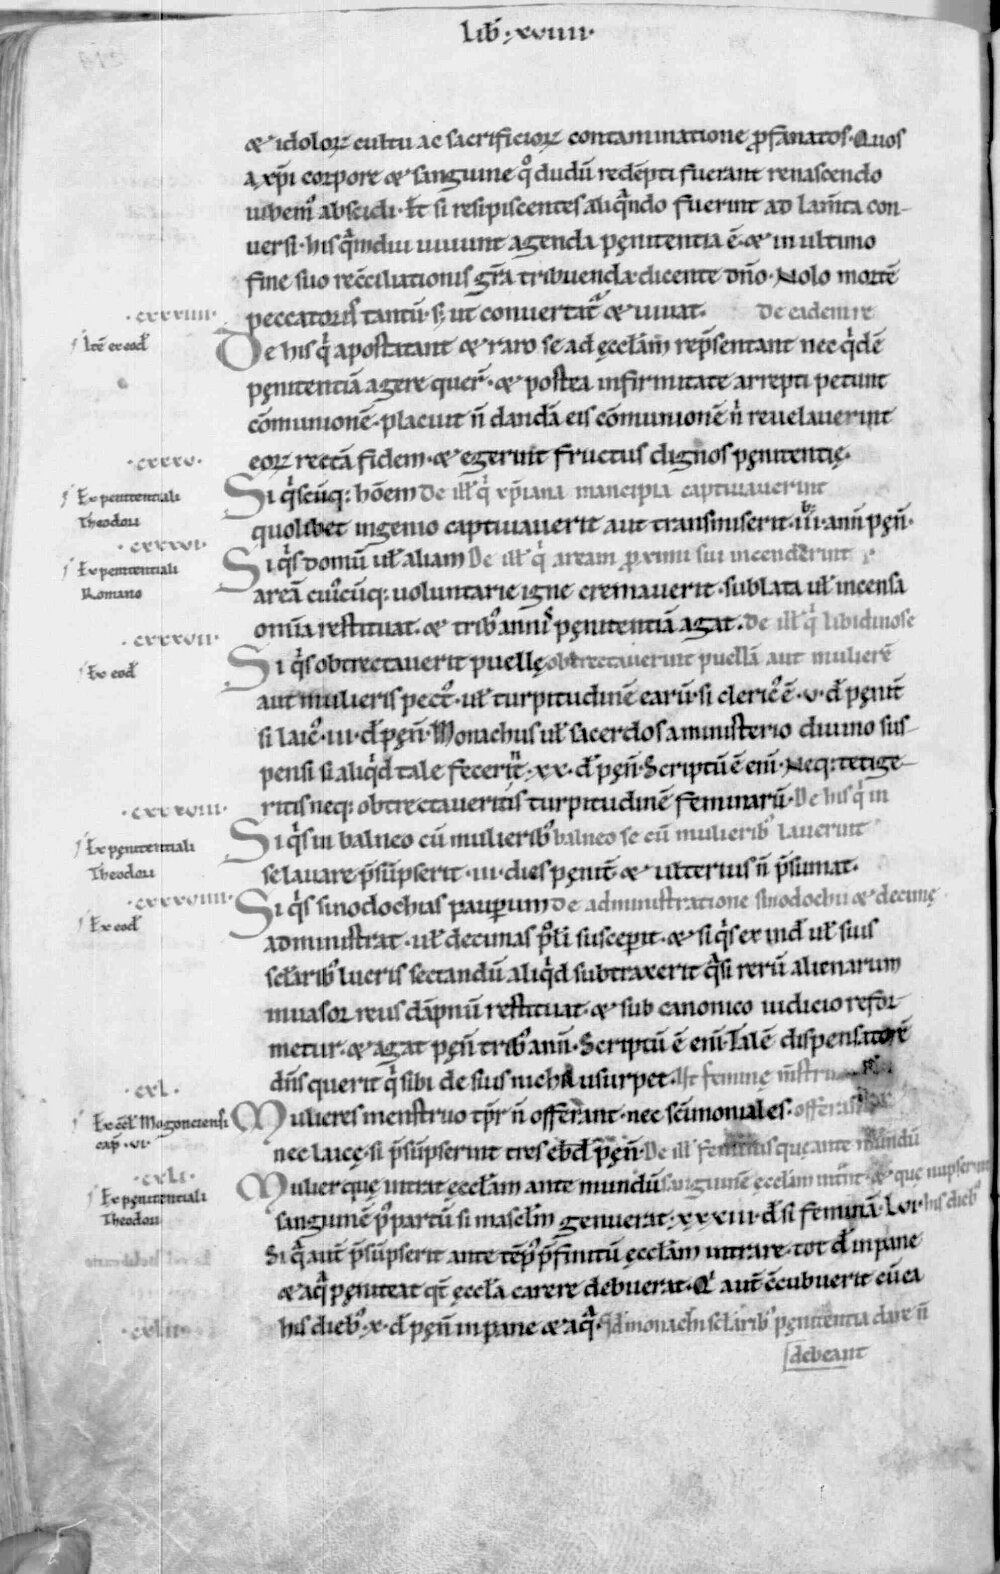 Lib̄ · xviiii ·
& idoloꝝ cultu ac sacrificioꝝ contaminatione ꝓfanatos. Quos
a xp̄i corpore & sanguine qͦ dudū redēpti fuerant renascendo
abscidi. si resipiscentes aliqͣndo fuerint ad lam̄ta con-
uersi. his qͣmdiu uiuunt agenda pęnitentia ē. & in ultimo
fine suo rec̄ciliationis gr̄a tribuenda. dicente dn̄o. Nolo mortē
· cxxxiiii · peccatoris tantū. s; ut conuertat᷑ & uiuat. De eadem re
Itē ex eod̄ De his qͥ apostatant & raro se ad ęccl̄am rep̄sentant nec qͥdē
pęnitentiā agere quer̄. & postea infirmitate arrepti petunt
cōmunionē. placuit n̄ dandā eis cōmunionē nͥ reuelauerint
· cxxxv · eoꝝ rectā fidem. & egerint fructus dignos pęnitentię.
Ex penitentiali Si qͥscūq: hōem De ill̄ qͥ xp̄iana mancipia captiuauerint
Theodori quolibet ingenio captiuauerit aut transmiserit. iii. ann̄ pęn̄.
· cxxxvi ·
Ex penitentiali Si qͥs domū ul̄ aliam De ill̄ qͥ aream ꝓximi sui incenderint
Romano areā cuiᷤcūq: uoluntarie igne cremauerit. sublata ul̄ incensa
· cxxxvii · omīa restituat. & tribꝰ annis pęnitentiā agat. De ill̄ qͥ libidinose
Ex eod̄ Si qͥs obtrectauerit puellę obtrectauerint puellā aut mulierē
aut mulieris pectꝰ. ul̄ turpitudinē earū. si clericꝰ ē. v. d̄ pęnit̄
si laicꝰ. iii. d̄ pęn̄. Monachus ul̄ sacerdos a ministerio diuino sus-
pensi si aliqͥd tale fecerīt. xx. d̄ pęn̄. Scriptū ē eni̅. Neq: tetige-
· cxxxviii · ritis neq: obtrectaueritis turpitudinē feminarū. De his qͥ in
Ex pęnitentiali Si qͥs in balneo cū mulieribꝰ balneo se cū mulieribꝰ lauerint
Theodori se lauare p̄sūpserit. iii. dies pęnit̄ & ulterius n̄ p̄sumat.
· cxxxviiii ·
Ex eod̄ Si qͥs sinodochias pauꝑum De administratione sinodochii & decimę
administrat. ul̄ decimas pp̄li susceꝑit. & si qͥs ex ind̄ ul̄ suis
sclāribꝰ lucris sectandū aliqͥd subtraxerit qͣsi rerū alienarum
inuasor reus dāpnū restituat. & sub canonico iudicio refor-
metur. & agat pęn̄ tribꝰ ann̄. Scriptū ē eni̅. Talē dispensatorē
· cxl · dn̄s querit qͥ sibi de suis nichil usurpet. Ut feminę m̄stru
Ex c̄cl̄ Mogonciensi Mulieres menstruo tp̄r n̄ offerant. nec sc̄imoniales.
cap̄ · vi · nec laicę. si p̄sūpserint tres ebd̄ pęn̄. De ill̄ feminis que ante mundū
· cxli ·
Ex pęnitentiali Mulier quę intrat ęccl̄am ante mundū sanguinē ęccl̄am int̄nt. & que nupserint
Theodori sanguinē p̄ partū si mascl̄m genuerat. xxxiii. d̄ si feminā. Lvi. his diebꝰ
Si qͣ aut̄ p̄sūpserit ante tēpꝰ p̄finitū ęccl̄am intrare. tot d̄ in pane
& aqͣ pęniteat qt̄ ęccl̄a carere debuerat. Qͥ aut̄ c̄cubuerit cū ea
· cxlii · his diebꝰ. x. d̄ pęn̄ in pane & aqͣ. Qd̄ monachi sclāribꝰ pęnitentia dare n̄
debeant